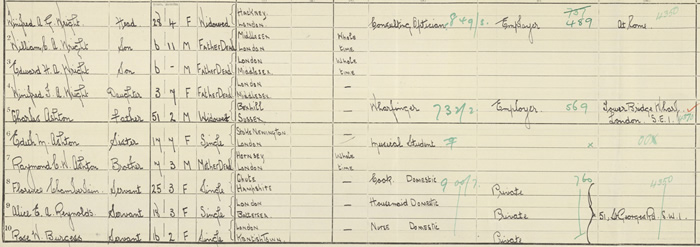 1 Winifred A. G. Wright Head 28 4 F Widowed Hackney London Consulting Optician 849/2. Employer 489 At home
2 William E. A. Wright Son 6 11 M Father Dead Middlesex London Whole time
3 Edward H. A. Wright Son 6 - M Father Dead London Middlesex Whole time
4 Winifred J. A. Wright Daughter 3 7 F Father Dead London Middlesex —
5 Charles Ashton Father 51 2 M Widower Bexhill Sussex — Wharfinger 732/2 Employer 569 Tower Bridge Wharf London S.E.1.
6 Edith M. Ashton Sister 17 7 F Single Stoke Newington London — Musical Student x
7 Raymond C. W. Ashton Brother 7 3 M Mother Dead Hornsey London Whole time
8 Florence Chamberlain Servant 25 3 F Single Chute Hampshire — Cook Domestic 760 Private
9 Alice E. A. Reynolds Servant 3 F Single London Battersea — Housemaid Domestic Private 51, St Georges Rd. S.W.1.
10 Rose W. Burgess Servant 16 2 F Single London Kentish Town — Nurse Domestic Private